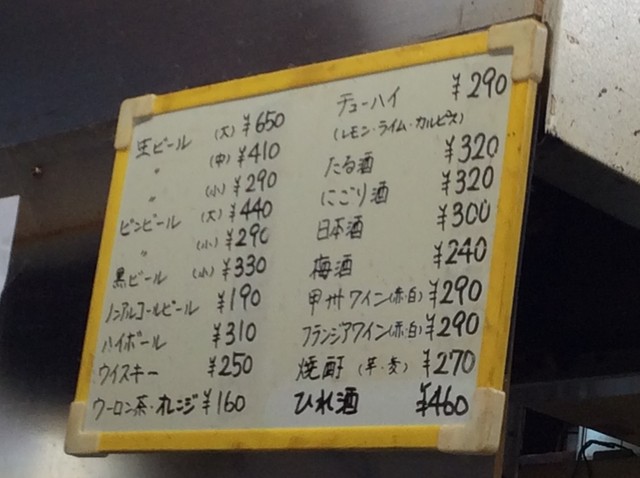 生ビール (大) ¥650
〃 (中) ¥410
〃 (小) ¥290
ビンビール (大) ¥440
〃 (小) ¥290
黒ビール (小) ¥330
ノンアルコールビール ¥190
ハイボール ¥310
ウイスキー ¥250
ウーロン茶・オレンジ ¥160
チューハイ ¥290
(レモン・ライム・カルピス)
たる酒 ¥320
にごり酒 ¥320
日本酒 ¥300
梅酒 ¥240
甲州ワイン(赤・白) ¥290
フランジアワイン(赤・白) ¥290
焼酎 (芋・麦) ¥270
ひれ酒 ¥460